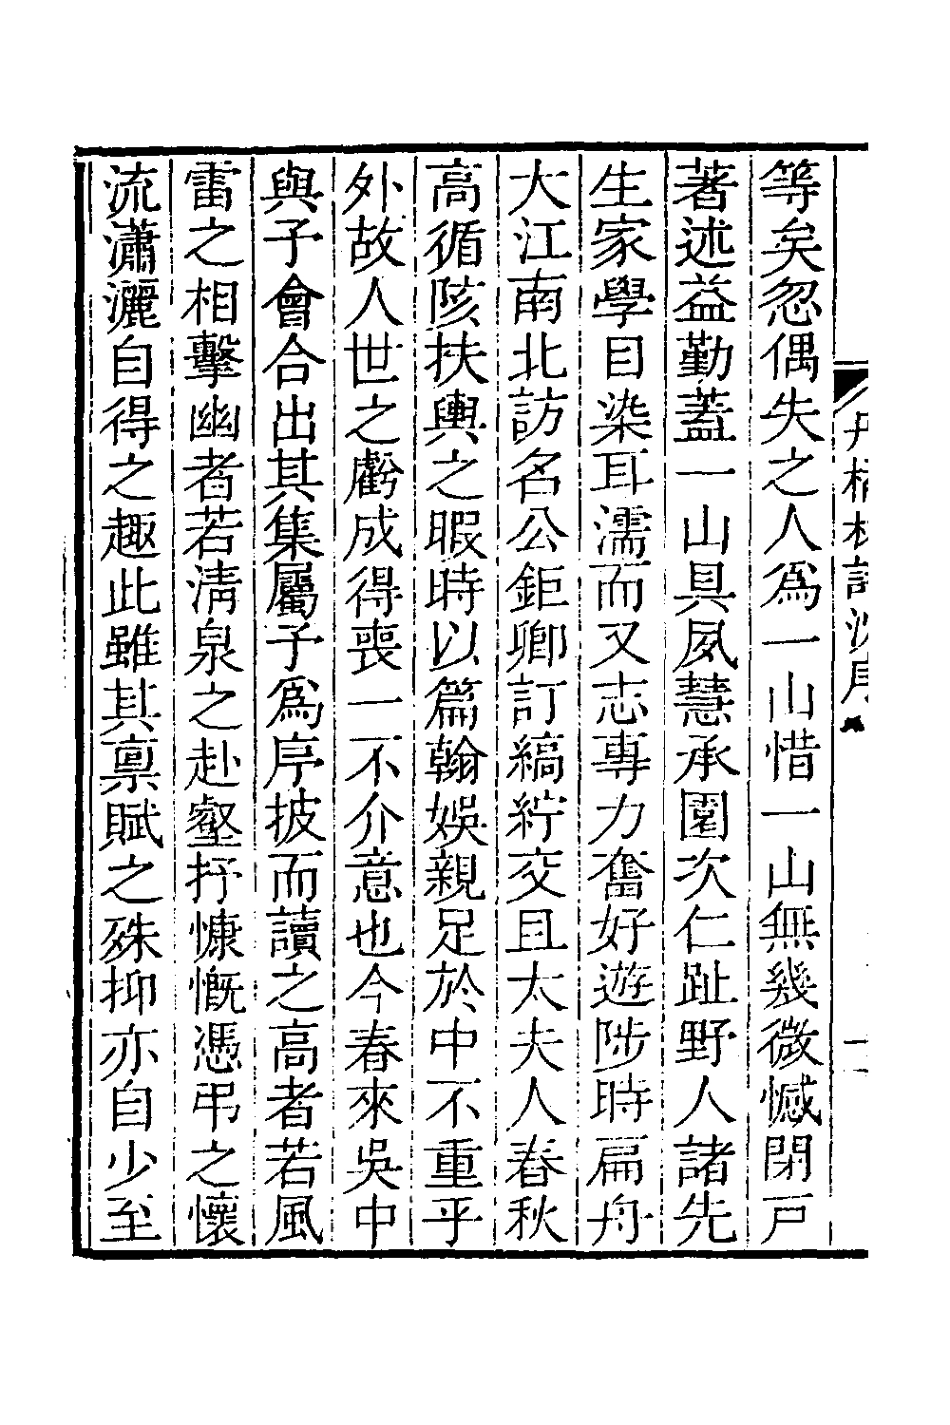 等矣忽偶失之人為一山惜一山無幾微憾閉戸
著述益勤蓋一山具夙慧承園次仁趾野人諸先
生家學目染耳濡而又志專力奮好遊陟時扁舟
大江南北訪名公鉅卿訂縞紵交且太夫人春秋
高循陔扶輿之暇時以篇翰娛親足於中不重乎
外故人世之虧成得喪一不介意也今春來吳中
與予會合出其集屬予為序披而讀之高者若風
雷之相擊幽者若清泉之赴壑抒慷慨憑弔之懷
流瀟灑自得之趣此雖其禀賦之殊抑亦自少至